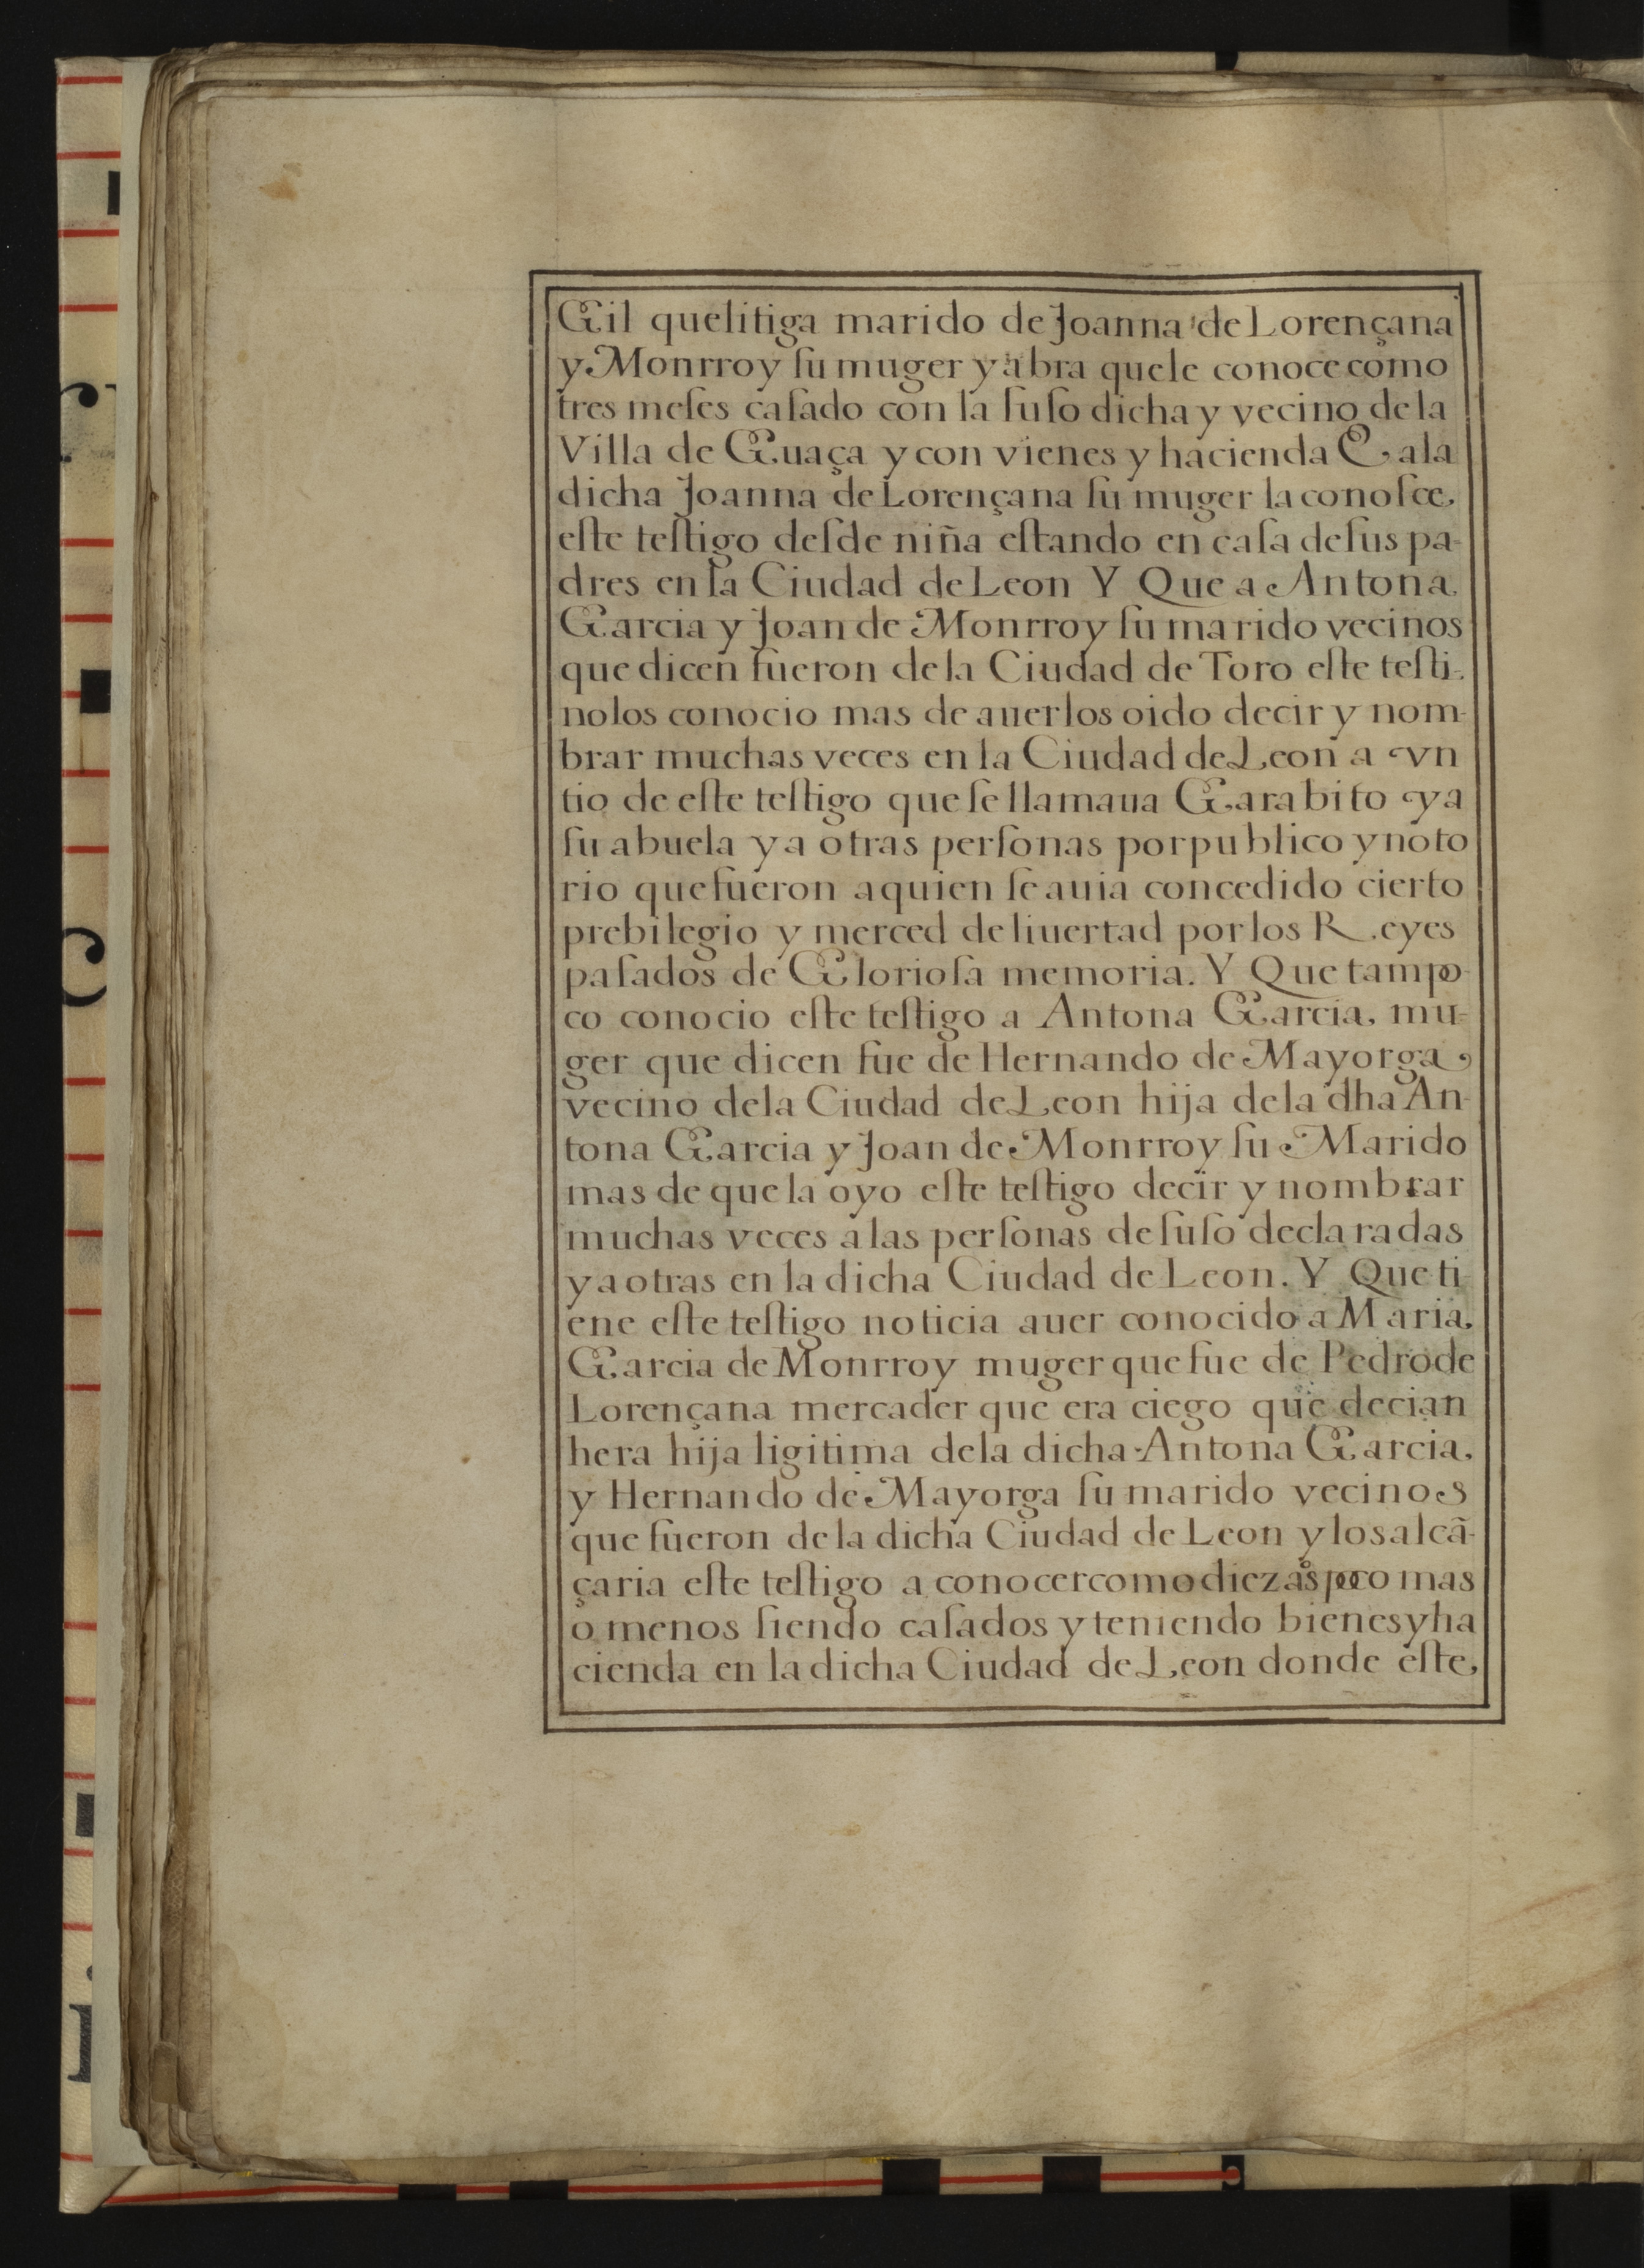 Gil que litiga marido de Joanna de Lorençana
y Monrroy ſu muger y abra quele conoce como
tres meſes caſado con la ſuſo dicha y vecino de la
Villa de Guaça y con vienes y hacienda E a la
dicha Joanna de Lorençana ſu muger la conoſce,
eſte teſtigo deſde niña eſtando en caſa de ſus pa-
dres en la Ciudad de Leon Y Que a Antona.
Garcia y Joan de Monrroy ſu marido vecinos
que dicen fueron de la Ciudad de Toro eſte teſti.
no los conocio mas de auerlos oido decir y nom-
brar muchas veces en la Ciudad de Leon a vn
tio de eſte teſtigo que ſe llamaua Garabito y a
ſu abuela y a otras perſonas por publico y noto
rio que fueron a quien ſe auia concedido cierto
prebilegio y merced de liuertad por los Reyes
paſados de Glorioſa memoria. Y Que tampo-
co conocio eſte teſtigo a Antona Garcia, mu-
ger que dicen fue de Hernando de Mayorga
vecino de la Ciudad de Leon hija de la dha An-
tona Garcia y Joan de Monrroy ſu Marido
mas de que la oyo eſte teſtigo decir y nombrar
muchas veces a las perſonas de ſuſo declaradas
y a otras en la dicha Ciudad de Leon. Y Que ti
ene eſte teſtigo noticia auer conocido a Maria,
Garcia de Monrroy muger que fue de Pedro de
Lorençana mercader que era ciego que decian
hera hija ligitima de la dicha Antona Garcia,
y Hernando de Mayorga ſu marido vecinos
que fueron de la dicha Ciudad de Leon y los alcã-
çaria eſte teſtigo a conocer como diez aºs poco mas
o menos ſiendo caſados y teniendo bienes y ha
cienda en la dicha Ciudad de Leon donde eſte,